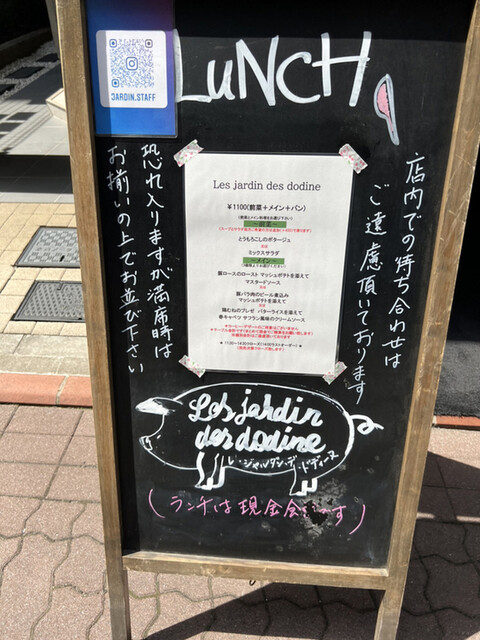 LUNCH
JARDIN.STAFF
店内での待ち合わせは
ご遠慮頂いております
恐れ入りますが満席時は
お揃いの上でお並び下さい
Les jardin des dodine
¥1100(前菜+メイン+パン)
～前菜～
とうもろこしのポタージュ
ミックスサラダ
～メイン～
豚ロースのロースト マッシュポテトを添えて
マスタードソース
豚バラ肉のビール煮込み
マッシュポテトを添えて
鶏むねのブレゼ バターライスを添えて
春キャベツ サフラン風味のクリームソース
Les jardin
des dodine
レ・ジャルダン・デ・ドディーヌ
(ランチは現金会です)